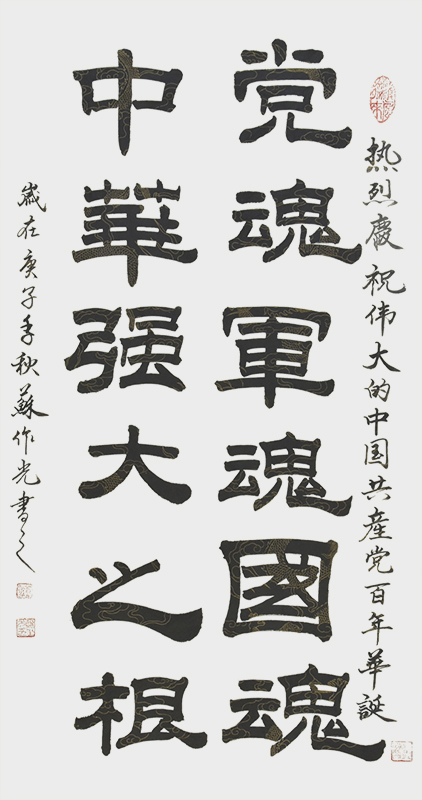 热烈慶祝伟大的中国共產党百年華誕
党魂軍魂國魂
中華强大之根
歲在庚子季秋蘇作光書之